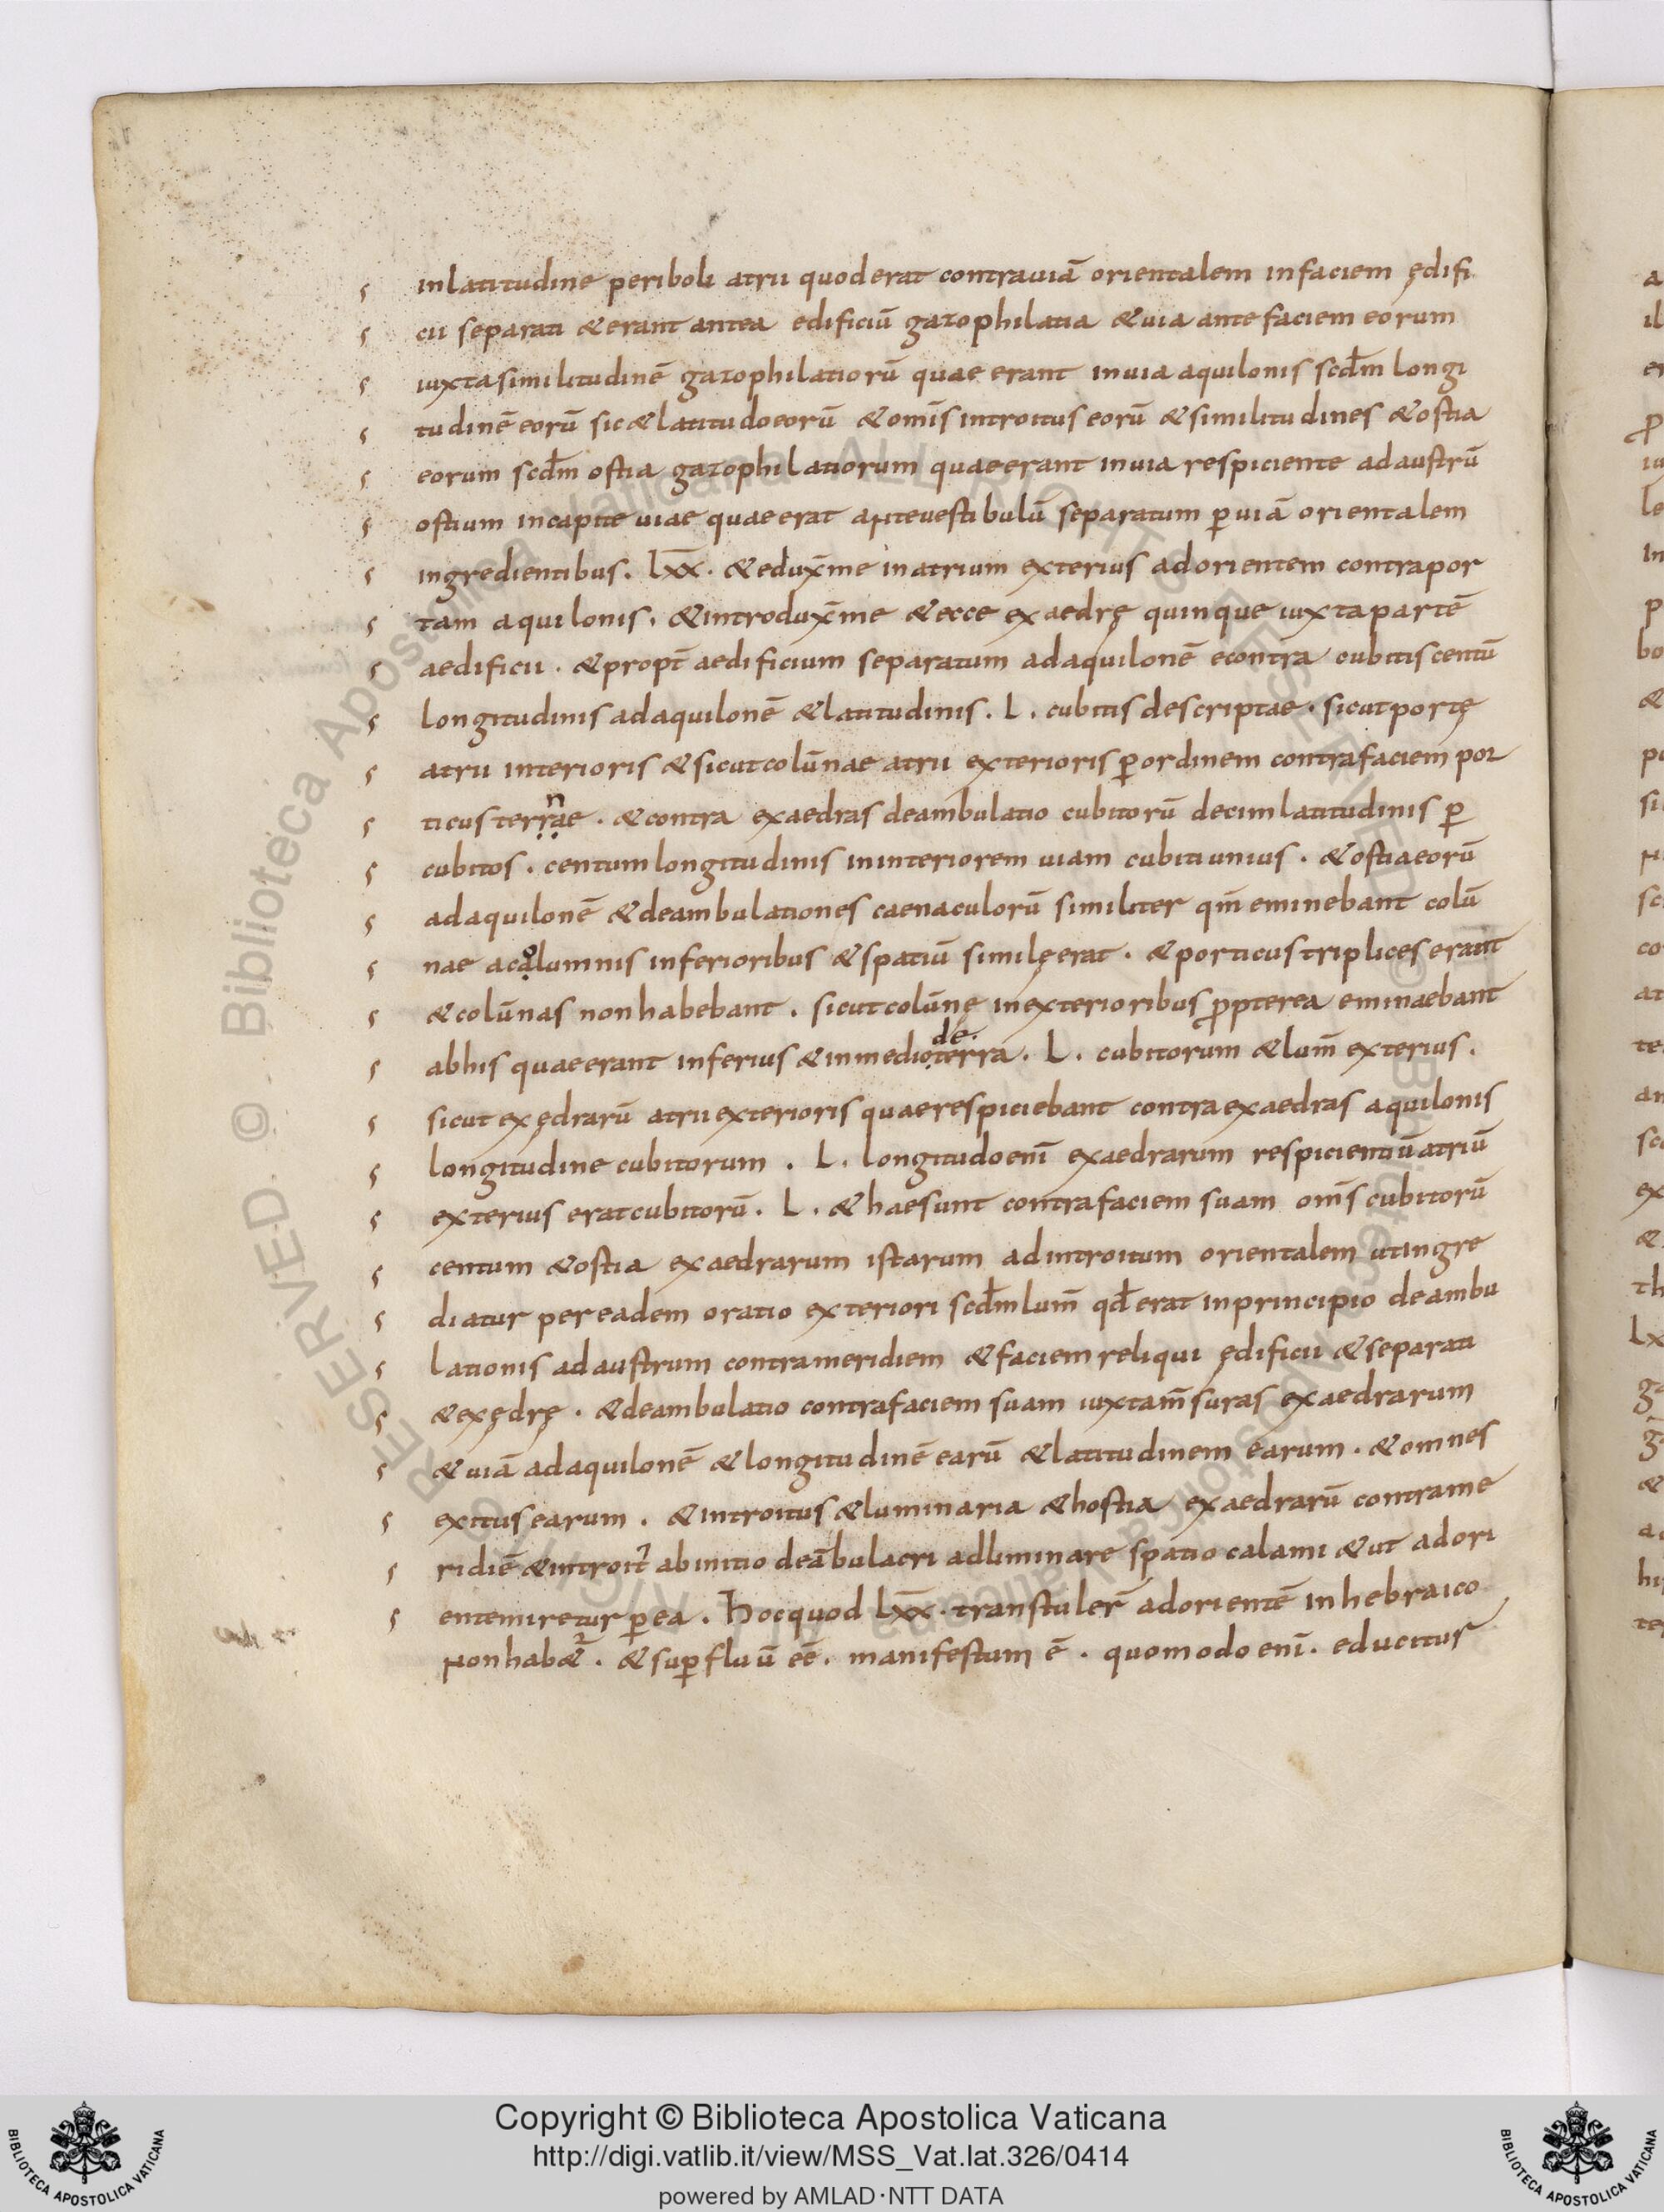 inlatitudine periboli atrii quoderat contrauiā orientalem infaciem ędifi
cii separati &erant antea edificiū gazophilatia &uia ante faciem eorum
iuxtasimilitudinē gazophilatiorū quae erant inuia aquilonis scd̄m longi
tudinē eorū sic&latitudoeorū &omīs introitus eorū &similitudines &ostia
eorum scd̄m ostia gazophilatiorum quaeerant inuia respiciente adaustrū
ostium incapite uiae quaeerat anteuestibulū separatum ꝑuiā orientalem
ingredientibus. lxx̄. &edux̄me inatrium exterius adorientem contrapor
tam aquilonis. &introdux̄me &ecce exaedrę quinque iuxtapartē
aedificii. &propt̄ aedificium separatum adaquilonē econtra cubitiscentū
longitudinis adaquilonē &latitudinis. L. cubitis descriptae. sicutportę
atrii interioris &sicutcolūnae atrii exterioris ꝑordinem contrafaciem por
n
ticus terrae. &contra exaedras deambulatio cubitorū decim latitudinis ꝑ
cubitos. centum longitudinis ininteriorem uiam cubiti unius. &ostiaeorū
adaquilonē &deambulationes caenaculorū similiter qm̄ eminebant colū
o
nae acalumnis inferioribus &spatiū similęerat. &porticus triplices erant
&colūnas nonhabebant. sicutcolūnę inexterioribus ꝓpterea eminaebant
de.
abhis quaeerant inferius &inmedioterra. L. cubitorum &lum̄ exterius.
sicut exędrarū atrii exterioris quaerespiciebant contraexaedras aquilonis
longitudine cubitorum. L. longitudoenī exaedrarum respicientiūatriū
exterius eratcubitorū. L. &haesunt contrafaciem suam om̄s cubitorū
centum &ostia exaedrarum istarum adintroitum orientalem utingre
diatur pereadem oratio exteriori scd̄mlum̄ qd̄ erat inprincipio deambu
lationis adaustrum contrameridiem &faciem reliqui ędificii &separati
&exędrę. &deambulatio contrafaciem suam iuxtam̄suras exaedrarum
&uiā adaquilonē &longitudinē earū &latitudinem earum. &omnes
exitus earum. &introitus &luminaria &hostia exaedrarū contrame
ridiē &introit᾽ abinitio deābulacri adliminare spatio calami &ut adori
entemiretur ꝑea. Hocquod lxx̄. transtuler̄ adorientē inhebraico
nonhab&ur. &suꝑfluū eē. manifestum ē. quomodo enī. educitur
Copyright © Biblioteca Apostolica Vaticana
http://digi.vatlib.it/view/MSS_Vat.lat.326/0414
powered by AMLAD·NTT DATA
BIBLIOTECA APOSTOLICA VATICANA
BIBLIOTECA APOSTOLICA VATICANA